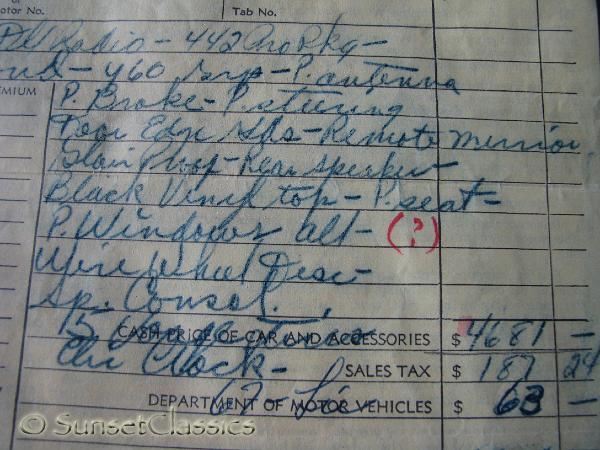 otor No.
Tab No.
Radio - 442 Pro Pkg -
- 460 - P. antenna
EMIUM
P. Brake - P. steering
Door Edge Gds - Remote Mirror
- Rear speaker
Black Vinyl top - P. seat -
P. Windows all - (?)
Wire Wheel Disc -
Sp. Consol.
15
CASH PRICE OF CAR AND ACCESSORIES $ 4681 -
Clock -
SALES TAX $ 187 24
DEPARTMENT OF MOTOR VEHICLES $ 63 -
© SunsetClassics